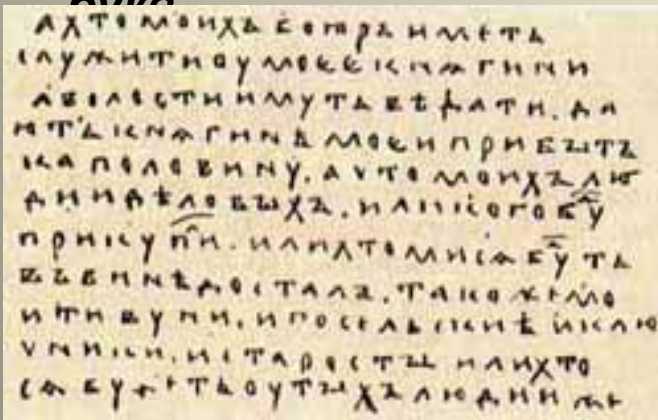 а хто моихъ боꙗръ иметь
служити оу моее кнѧгини
а волости имуть вѣдати. да
ють кнѧгинѣ моеи прибыть
ка половину. а что моихъ лю
дии дѣловыхъ. или кого бу
прикупи. или хто ми сѧ буть
въ винѣ досталъ. такоже мо
и тивуни. и посельскиѣ и клю
чники. и старосты или хто
сѧ будеть оу тыхъ людии же